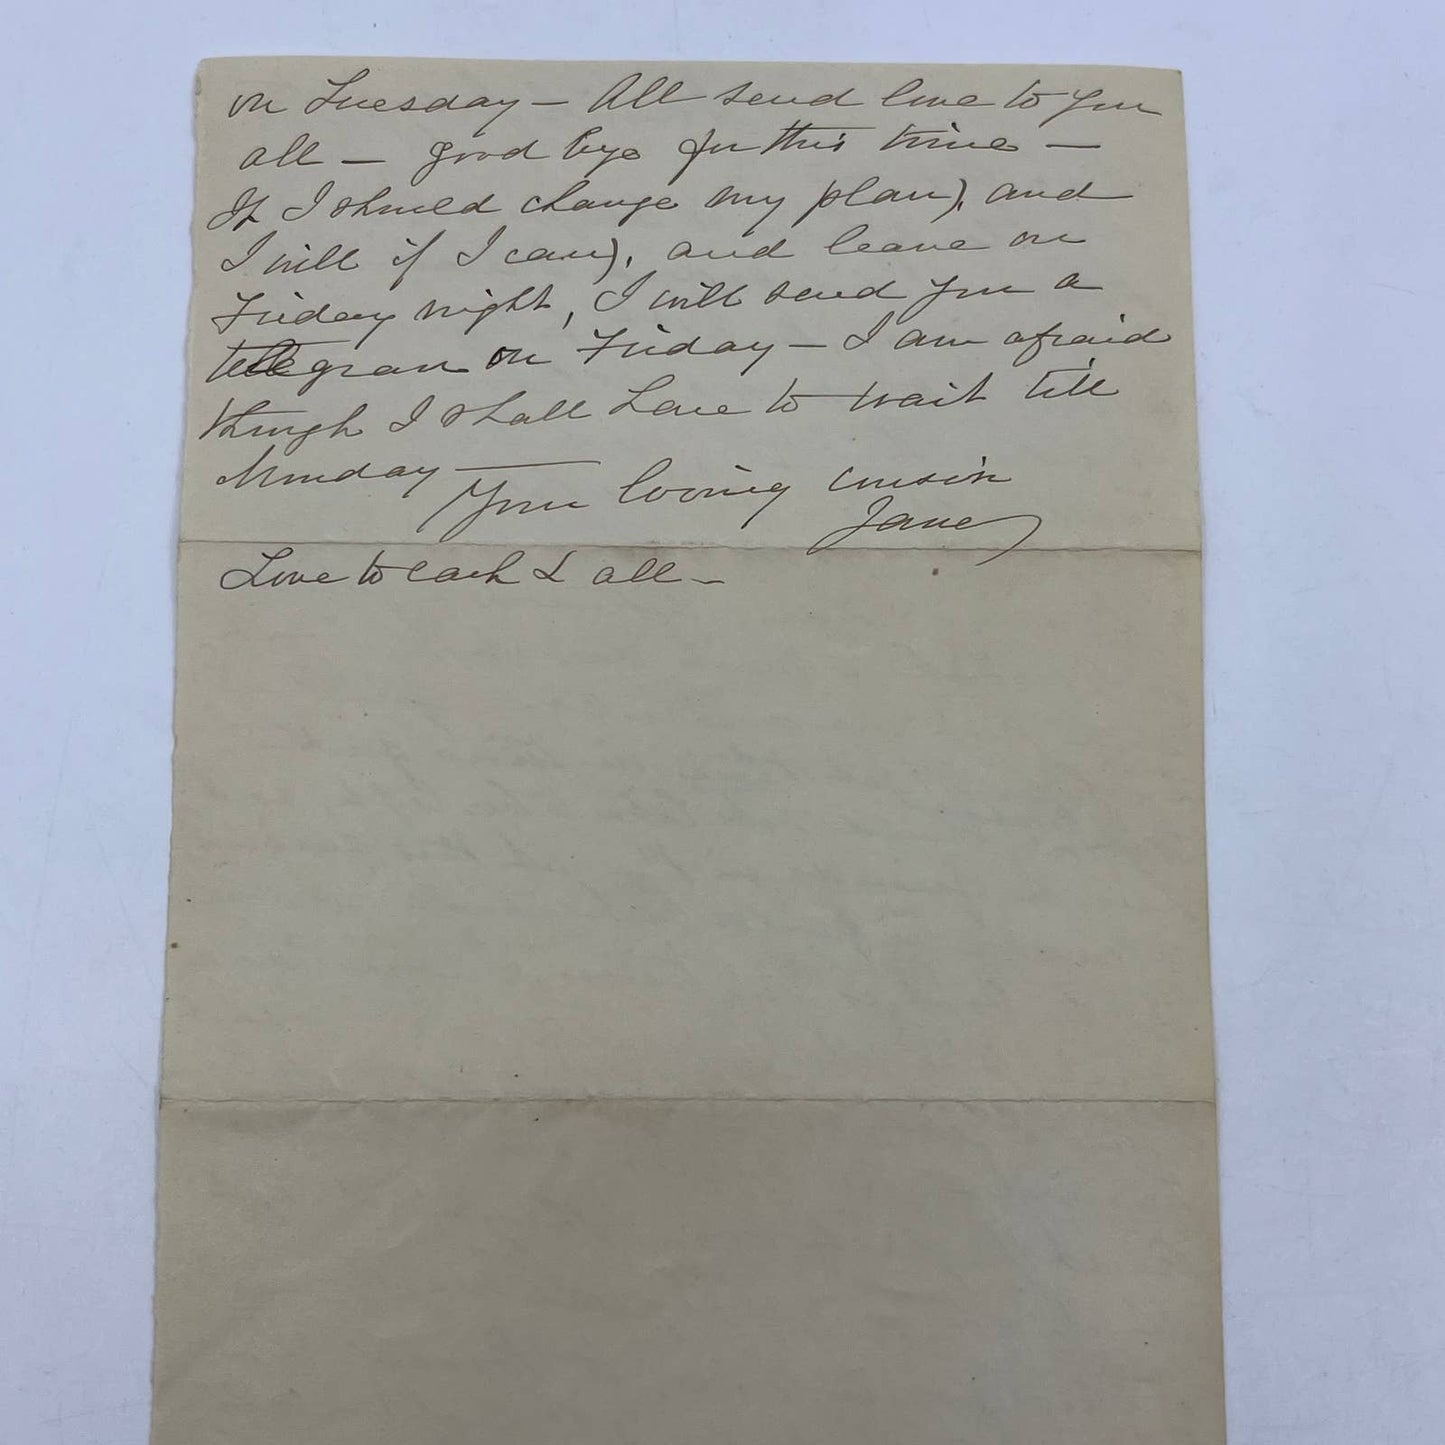 on Tuesday — All send love to you
all — good bye for this time —
If I should change my plan, and
I will if I can, and leave on
Friday night, I will send you a
telegram on Friday — I am afraid
though I shall have to wait till
Monday —
Your loving cousin
Jane
Love to each & all —